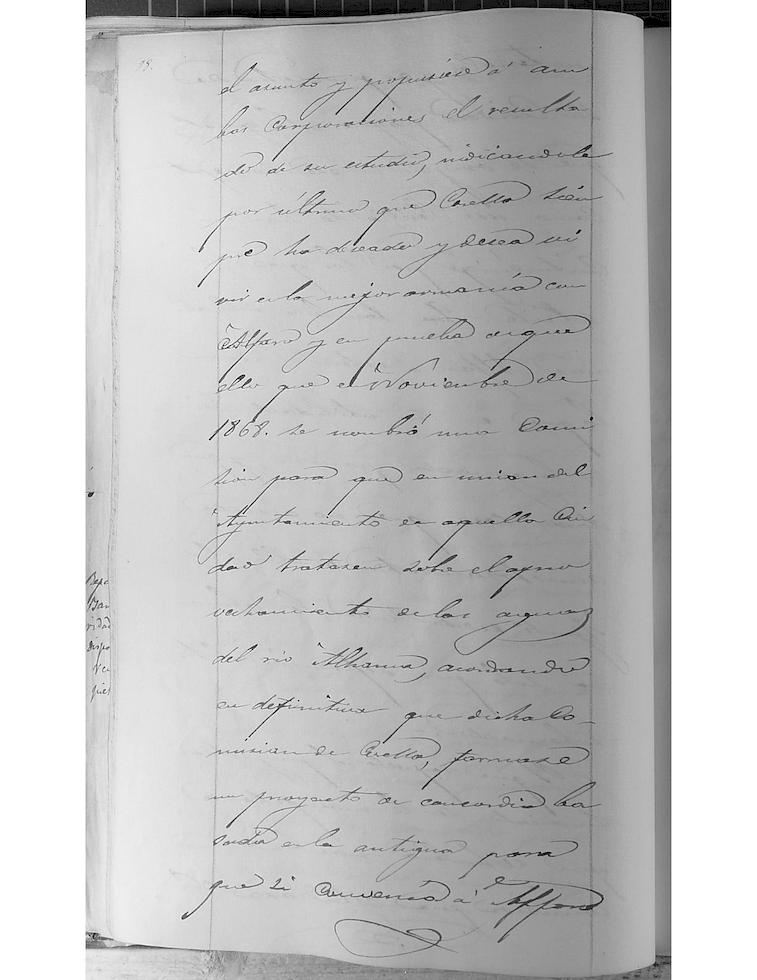 el asunto y propusiese á am
bas Corporaciones el resulta
do de su estudio, indicandole
por ultimo que Corella siem
pre ha deseado y desea vi
vir en la mejor armonía con
Alfaro y en prueba de que
ello que en Noviembre de
1868. se nombró una Comi
sion para que en union del
Ayuntamiento de aquella Ciu
dad tratasen sobre el apro
vechamiento de las aguas
del rio Alhama, acordando
en definitiva que dicha Co-
mision de Corella, formase
un proyecto de concordia ba
sada en la antigua para
que si convenia á Alfaro